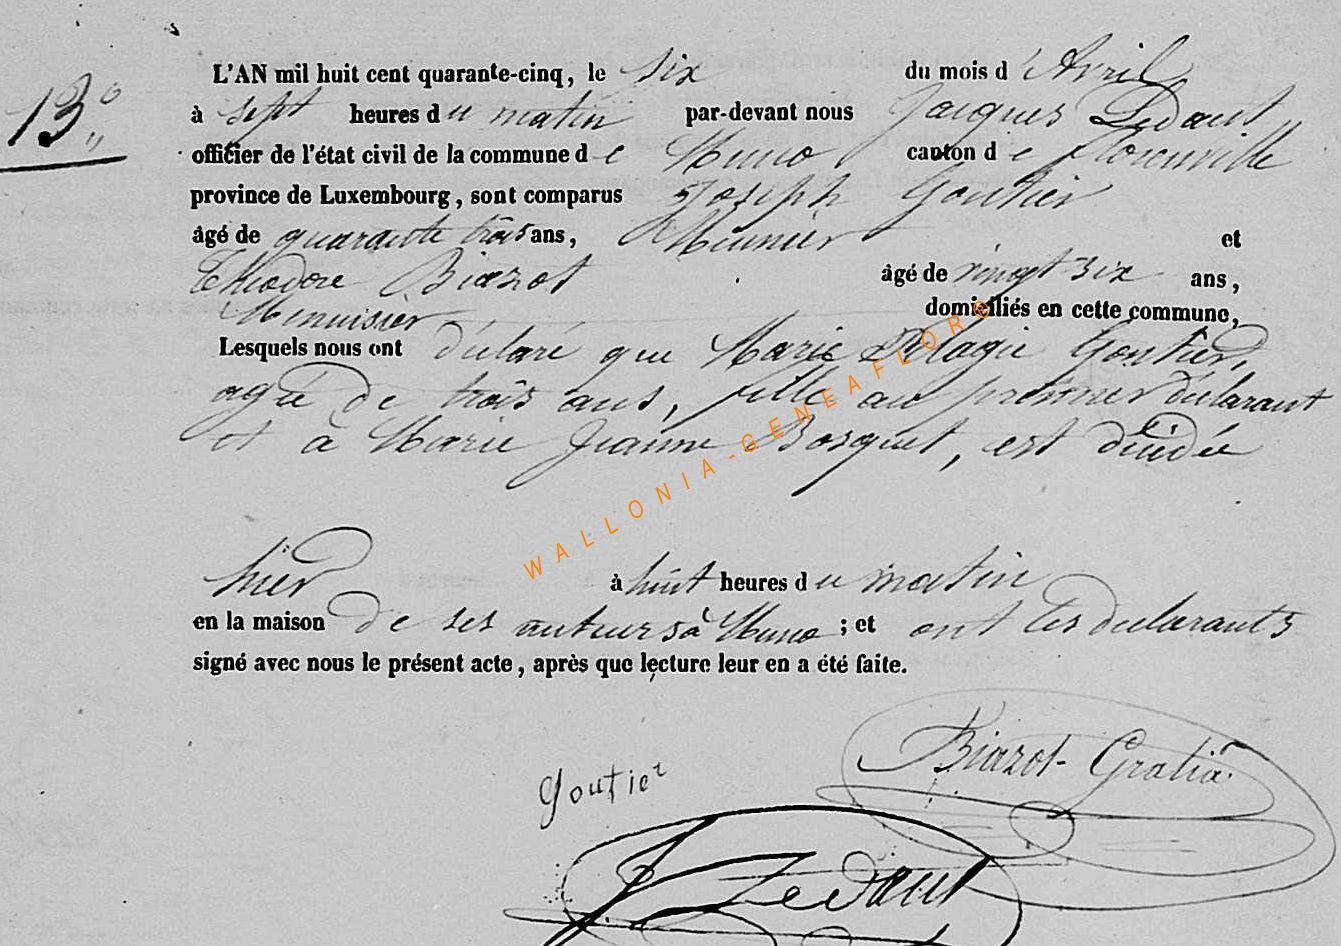 13°
L'AN mil huit cent quarante-cinq, le six du mois d'Avril
à sept heures du matin par-devant nous Jacques Ledant
officier de l'état civil de la commune de Muno canton de florenville
province de Luxembourg, sont comparus Joseph Goutier
âgé de quarante trois ans, Meunier et
Théodore Biazot âgé de vingt six ans,
Menuisier domiciliés en cette commune,
Lesquels nous ont déclaré que Marie Pélagie Goutier,
agée de trois ans, fille au premier déclarant
et à Marie Jeanne Bosquet, est décédée
hier à huit heures du matin
en la maison de ses auteurs à Muno ; et ont les déclarants
signé avec nous le présent acte, après que lecture leur en a été faite.
Biazot-Gratia
goutier
J Ledant
WALLONIA-GENEAFLORE